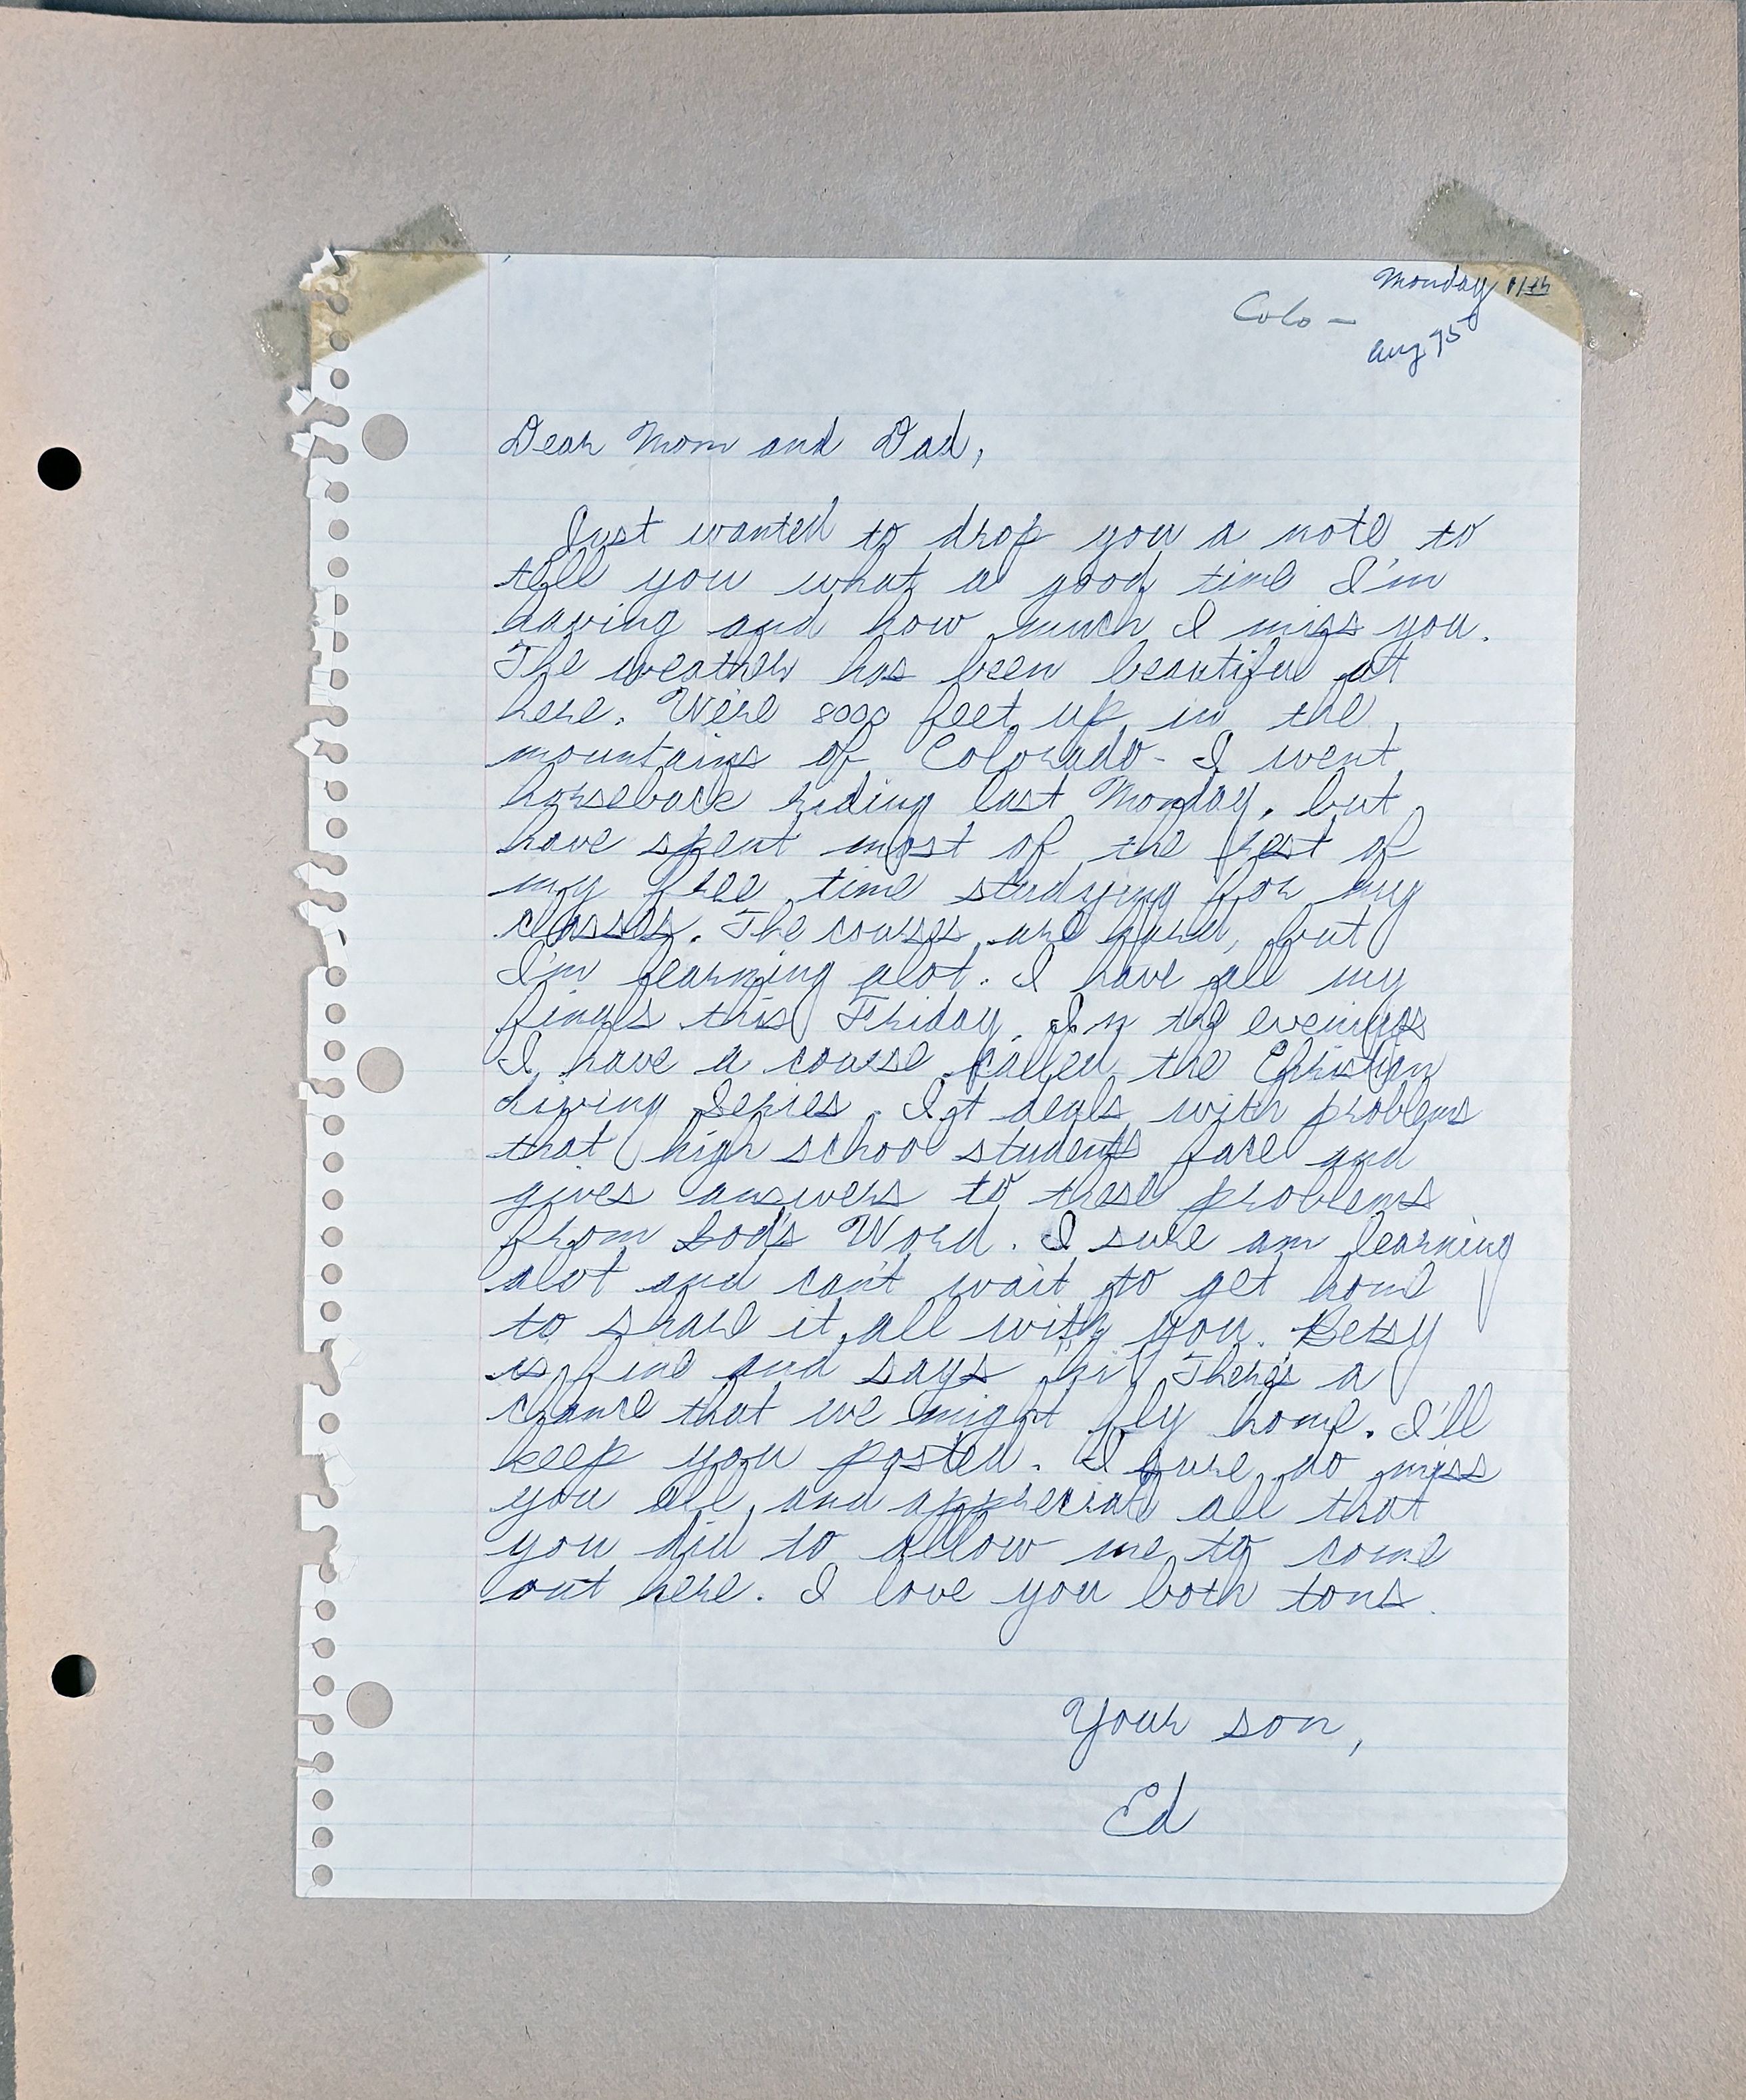 Monday 11th
Colo -
Aug 75
Dear Mom and Dad,
Just wanted to drop you a note to
tell you what a good time I'm
having and how much I miss you.
The weather has been beautiful out
here. We're 8000 feet up in the
mountains of Colorado - I went
horseback riding last Monday, but
have spent most of the rest of
my free time studying for my
classes. The courses are hard, but
I'm learning alot. I have all my
finals this Friday. In the evenings
I have a course called the Christian
Living Series. It deals with problems
that high school students face and
gives answers to these problems
from God's Word. I sure am learning
alot and can't wait to get home
to share it all with you. Betsy
is fine and says "hi". There's a
chance that we might fly home. I'll
keep you posted. I sure do miss
you all, and appreciate all that
you did to allow me to come
out here. I love you both tons.
Your son,
Ed